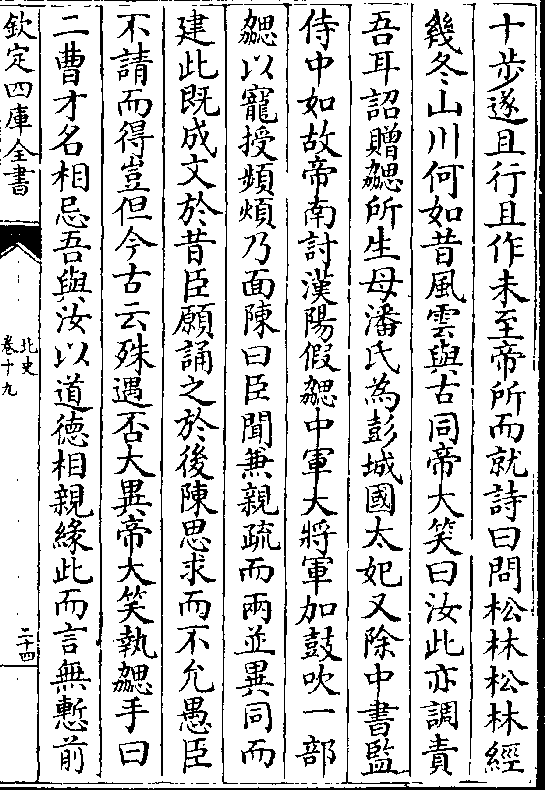 十步遂且行且作未至帝所而就詩曰問松林松林經
幾冬山川何如昔風雲與古同帝大笑曰汝此亦調責
吾耳詔贈勰所生母潘氏為彭城國太妃又除中書監
侍中如故帝南討漢陽假勰中軍大將軍加鼓吹一部
勰以寵授頻煩乃面陳曰臣聞兼親疏而兩並異同而
建此既成文於昔臣願誦之於後陳思求而不允愚臣
不請而得豈但今古云殊遇否大異帝大笑執勰手曰
二曹才名相忌吾與汝以道德相親緣此而言無慙前
欽定四庫全書
北史
卷十九
二十四